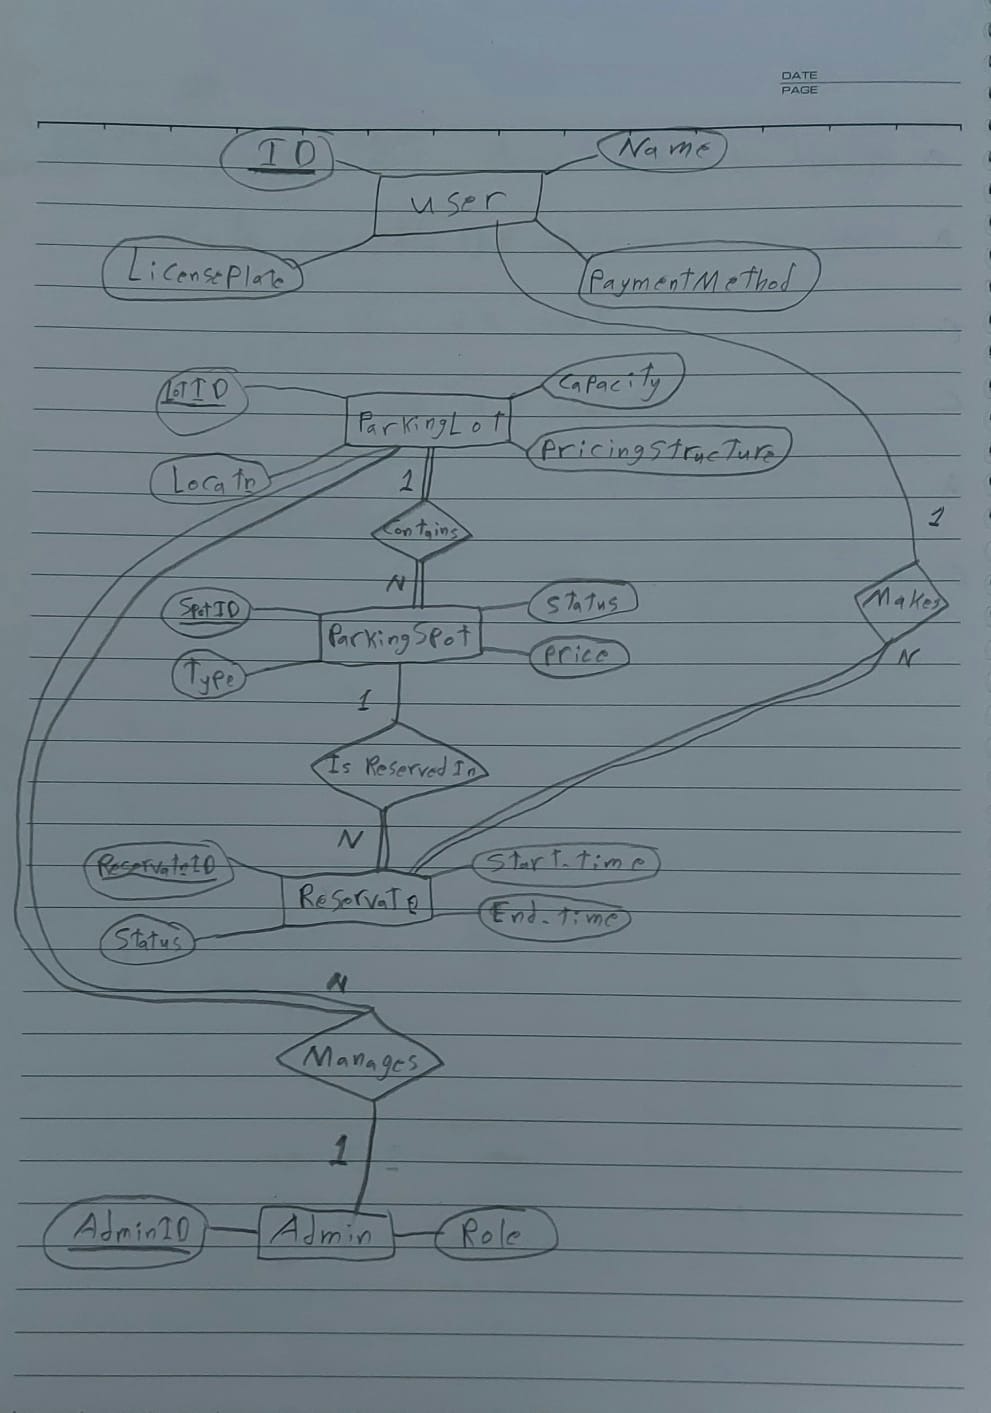 DATE
PAGE
ID
Name
user
LicensePlate
PaymentMethod
LotID
Capacity
ParkingLot
PricingStructure
Locatn
1
Contains
1
N
SpotID
Status
Makes
ParkingSpot
Price
Type
N
1
Is Reserved In
N
ReservateID
Start-time
Reservate
End-time
Status
N
Manages
1
AdminID
Admin
Role